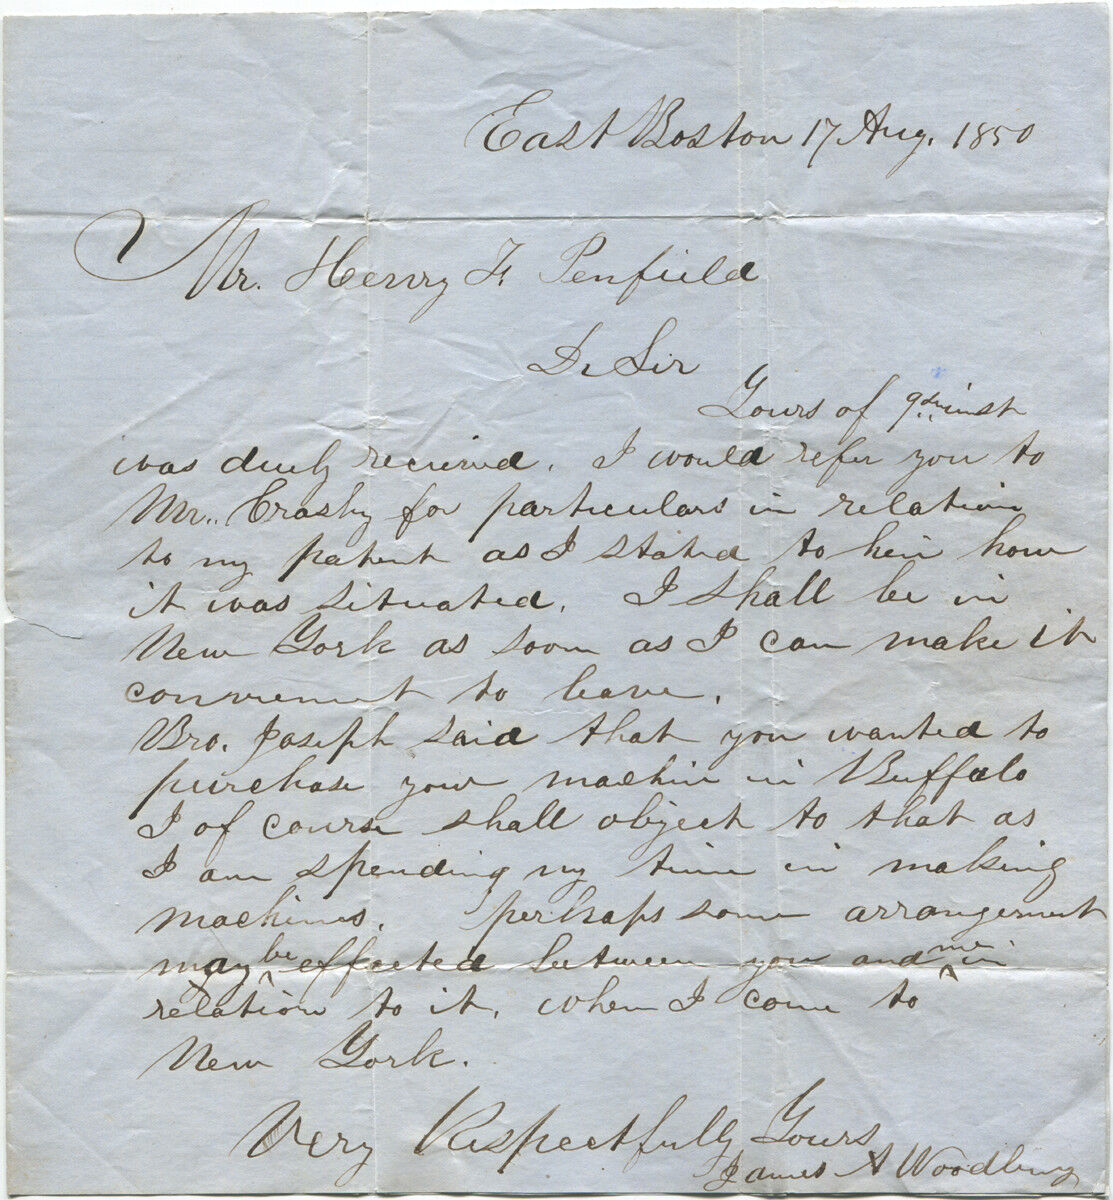 East Boston 17 Aug. 1850
Mr. Henry F. Penfield
Dr Sir
Yours of 9th inst
was duely recieved. I would refer you to
Mr. Crosby for particulars in relation
to my patent as I stated to him how
it was situated. I shall be in
New York as soon as I can make it
convenient to leave.
Bro. Joseph said that you wanted to
purchase your machine in Buffalo
I of course shall object to that as
I am spending my time in making
machines. perhaps some arrangement
may be effected between you and me in
relation to it, when I come to
New York.
Very Respectfully Yours
James A Woodbury